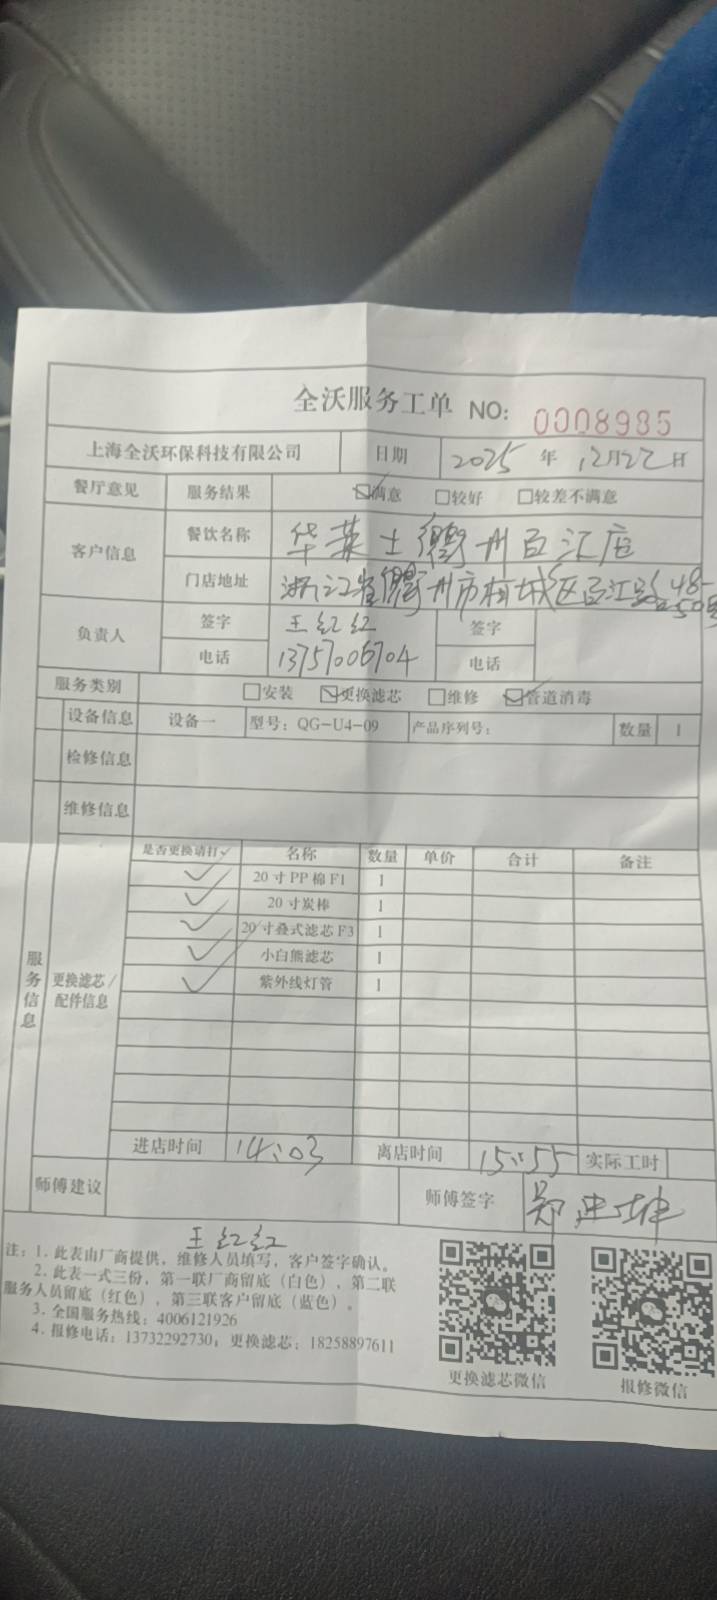 全沃服务工单 NO: 0008985
上海全沃环保科技有限公司 日期 2025年12月22日
餐厅意见 服务结果 ☑满意 □较好 □较差不满意
客户信息 餐饮名称 华莱士衢州百汇店
门店地址 浙江省衢州市柯城区百江路48-50号
负责人 签字 王红红 签字
电话 13757006704 电话
服务类别 □安装 ☑更换滤芯 □维修 ☑管道消毒
设备信息 设备一 型号: QG-U4-09 产品序列号: 数量 1
检修信息
维修信息
服务信息
更换滤芯/配件信息
是否更换请打✓ 名称 数量 单价 合计 备注
✓ 20寸PP棉F1 1
✓ 20寸炭棒 1
✓ 20寸叠式滤芯F3 1
✓ 小白熊滤芯 1
✓ 紫外线灯管 1
进店时间 14:03 离店时间 15:55 实际工时
师傅建议 师傅签字 郑忠坤
王红红
注: 1. 此表由厂商提供, 维修人员填写, 客户签字确认。
2. 此表一式三份, 第一联厂商留底(白色), 第二联
服务人员留底(红色), 第三联客户留底(蓝色)。
3. 全国服务热线: 4006121926
4. 报修电话: 13732292730; 更换滤芯: 18258897611
更换滤芯微信 报修微信